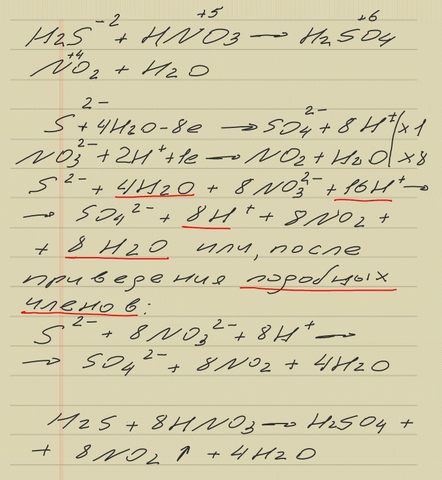 H2S⁻² + HN⁺⁵O3 → H2S⁺⁶O4
N⁺⁴O2 + H2O
S²⁻ + 4H2O - 8e → SO4²⁻ + 8H⁺ | x1
NO3²⁻ + 2H⁺ + 1e → NO2 + H2O | x8
S²⁻ + 4H2O + 8NO3²⁻ + 16H⁺ →
→ SO4²⁻ + 8H⁺ + 8NO2 +
+ 8H2O или, после
приведения подобных
членов:
S²⁻ + 8NO3²⁻ + 8H⁺ →
→ SO4²⁻ + 8NO2 + 4H2O
H2S + 8HNO3 → H2SO4 +
+ 8NO2↑ + 4H2O